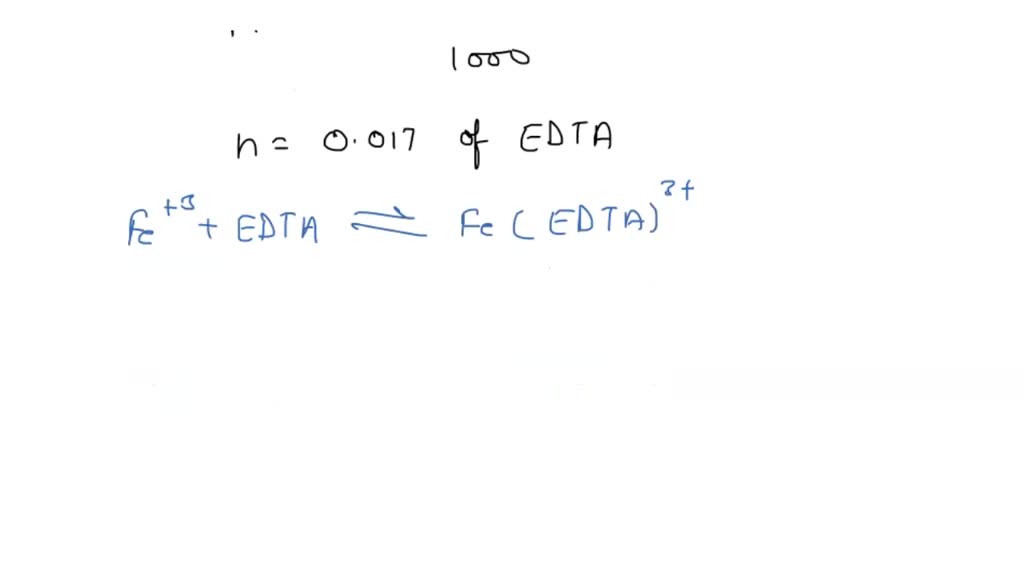 1000
n = 0.017 of EDTA
Fe+3 + EDTA ⇌ Fe(EDTA)3+